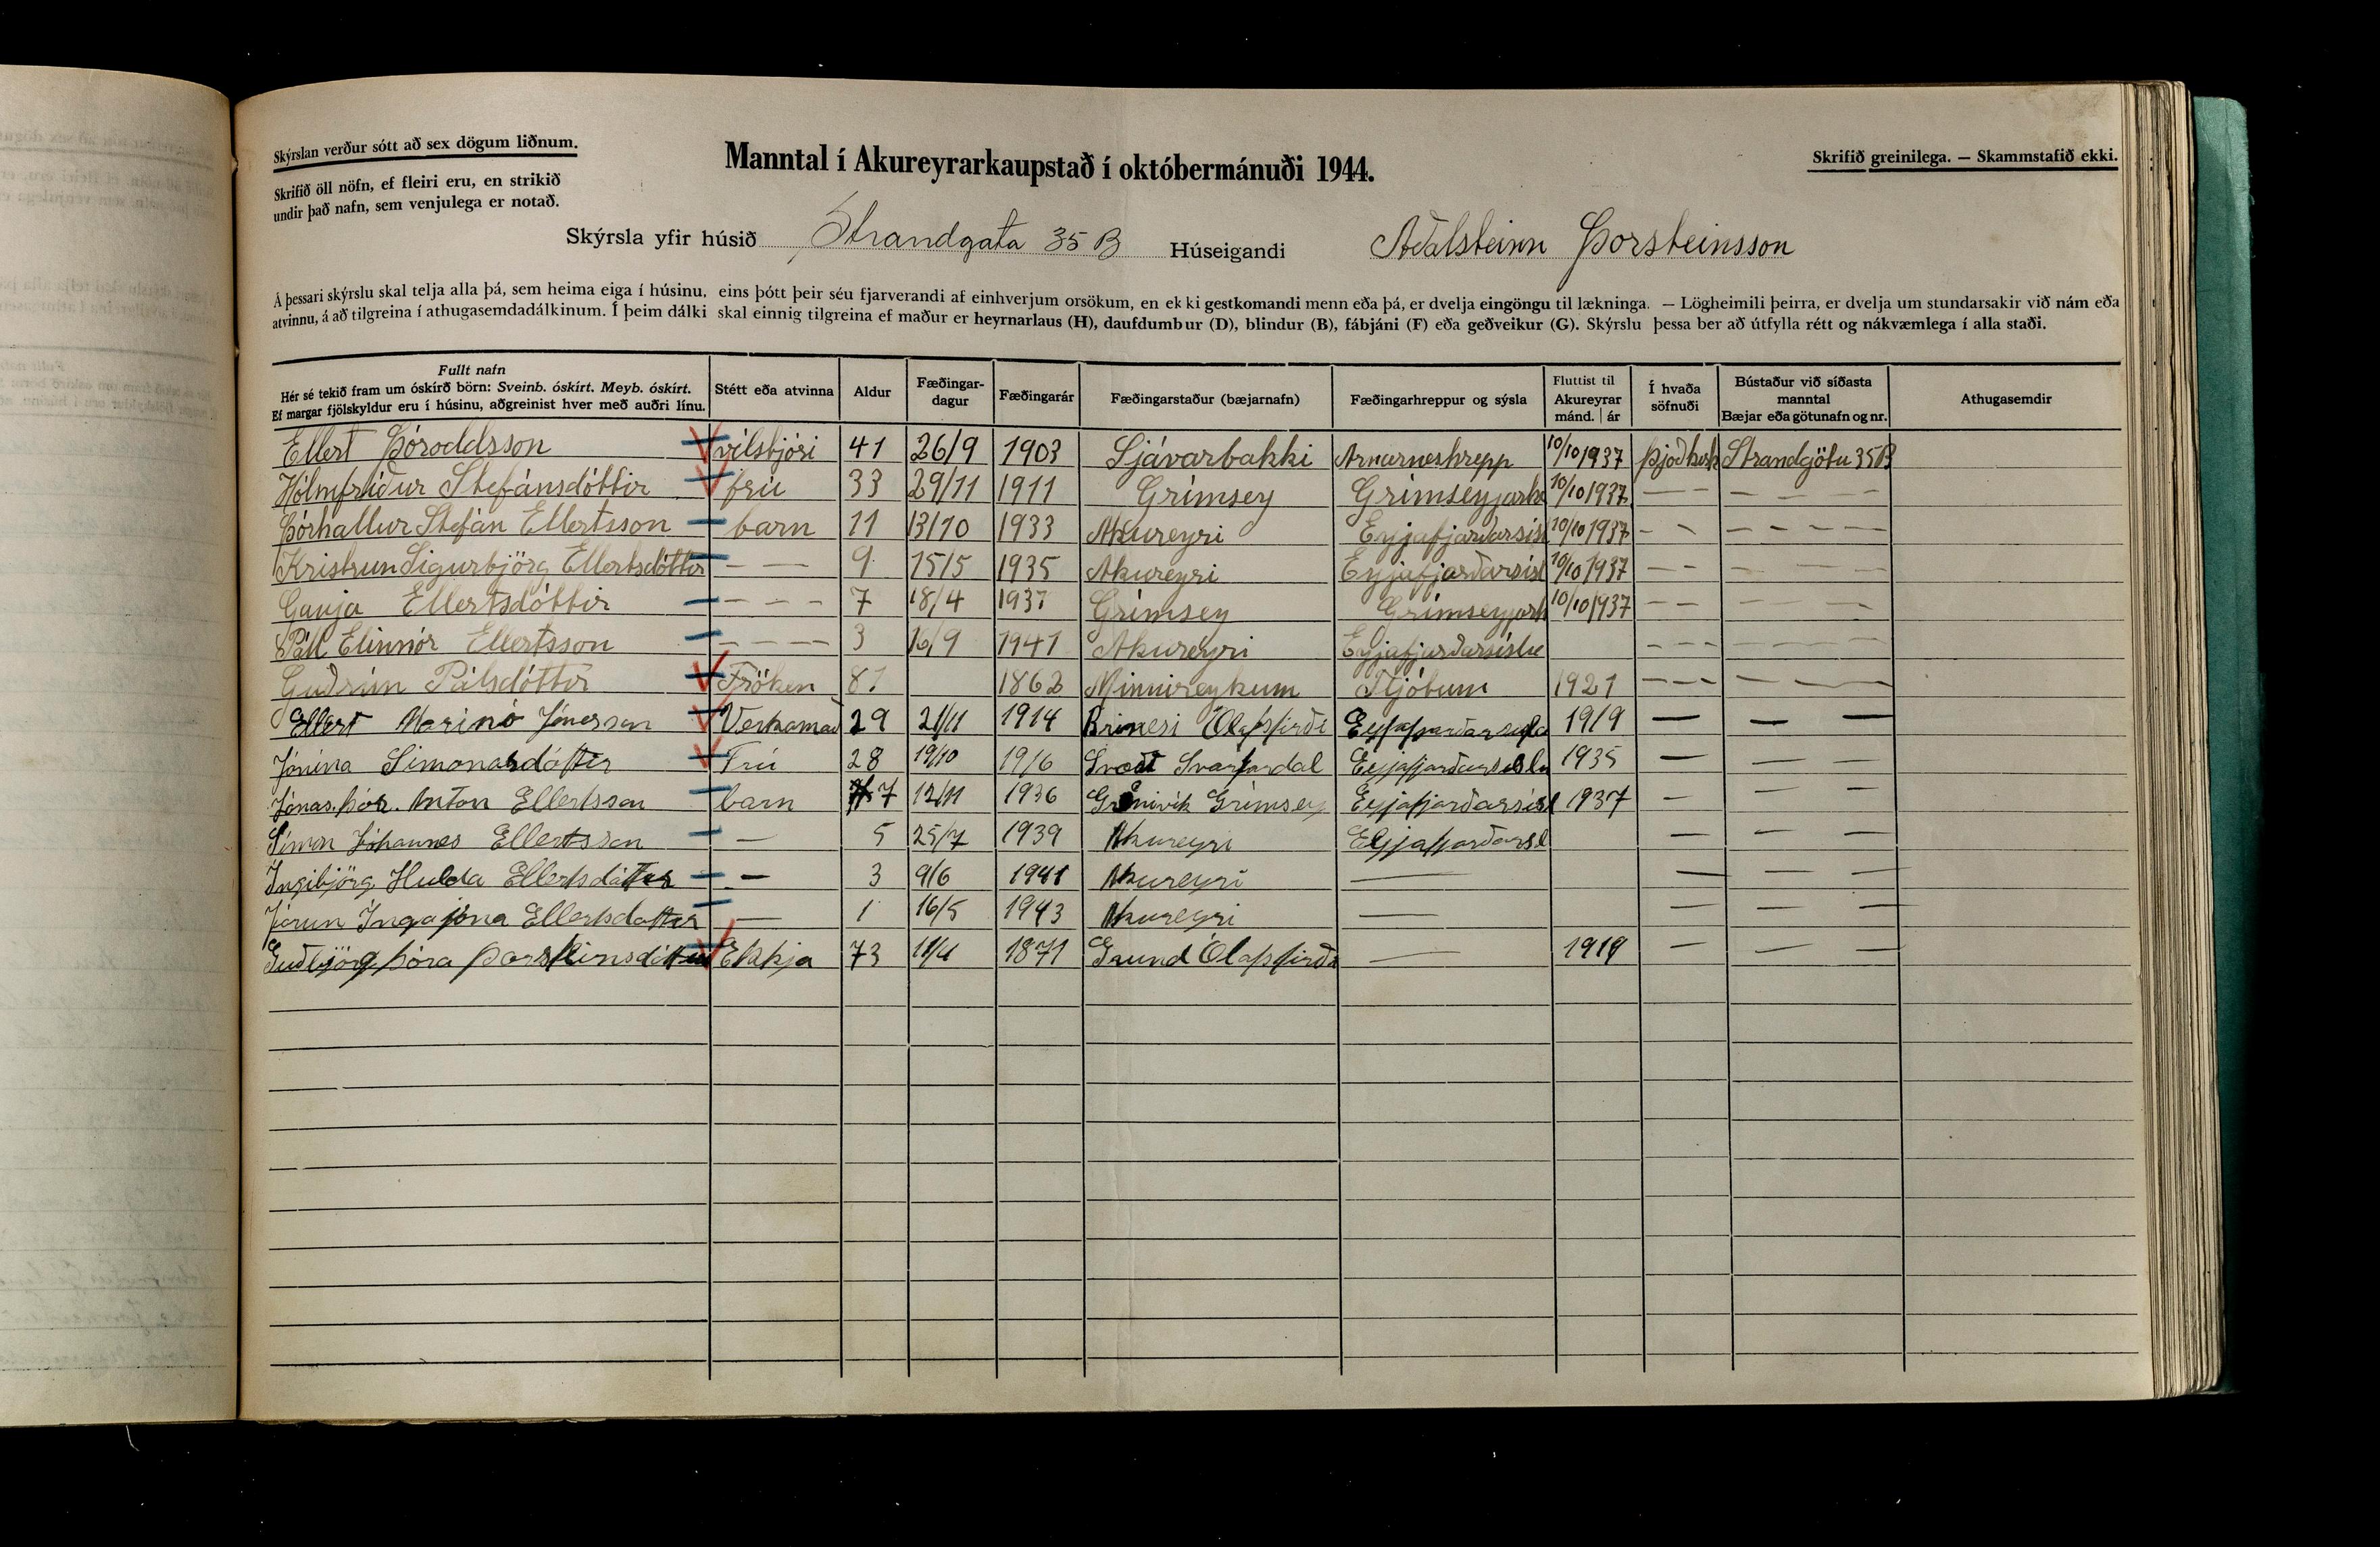 Skýrslan verður sótt að sex dögum liðnum.
Skrifið öll nöfn, ef fleiri eru, en strikið
undir það nafn, sem venjulega er notað.
Manntal í Akureyrarkaupstað í októbermánuði 1944.
Skrifið greinilega. — Skammstafið ekki.
Skýrsla yfir húsið Strandgata 35 B Húseigandi Aðalsteinn Þorsteinsson
Á þessari skýrslu skal telja alla þá, sem heima eiga í húsinu, eins þótt þeir séu fjarverandi af einhverjum orsökum, en ekki gestkomandi menn eða þá, er dvelja eingöngu til lækninga. — Lögheimili þeirra, er dvelja um stundarsakir við nám eða
atvinnu, á að tilgreina í athugasemdadálkinum. Í þeim dálki skal einnig tilgreina ef maður er heyrnarlaus (H), daufdumbur (D), blindur (B), fábjáni (F) eða geðveikur (G). Skýrslu þessa ber að útfylla rétt og nákvæmlega í alla staði.
Fullt nafn
Hér sé tekið fram um óskírð börn: Sveinb. óskírt. Meyb. óskírt.
Ef margar fjölskyldur eru í húsinu, aðgreinist hver með auðri línu.
Stétt eða atvinna
Aldur
Fæðingar-
dagur
Fæðingarár
Fæðingarstaður (bæjarnafn)
Fæðingarhreppur og sýsla
Fluttist til
Akureyrar
mánd. | ár
Í hvaða
söfnuði
Bústaður við síðasta
manntal
Bæjar eða götunafn og nr.
Athugasemdir
Ellert Þóroddsson 41 26/9 1903 Sjávarbakki Arnarneshrepp 10/10 1937 Þjóðkirk Strandgötu 35B
Hólmfríður Stefánsdóttir frú 33 29/11 1911 Grímsey 10/10 1937 — — — — — —
Þórhallur Stefán Ellertsson barn 11 13/10 1933 Akureyri Eyjafjarðarsísl 10/10 1937 — — — — — —
Kristrun Sigurbjörg Ellertsdóttir — — — 9 15/5 1935 Akureyri Eyjafjarðarsísl 10/10 1937 — — — — — —
Ellertsdóttir — — — 7 18/4 1937 Grímsey 10/10 1937 — — — — — —
Páll Ellertsson — — — 3 16/9 1941 Akureyri Eyjafjarðarsíslu — — — — — — —
Guðrún Pálsdóttir Fröken 81 1862 1921 — — — — — —
Ellert Marinó Jónasson Verkamað 29 21/11 1914 Brimnesi Ólafsfirði 1919 — — —
Jónína Simonardóttir Frú 28 19/10 1916 Svarfardal 1935 — — —
Jónas. Þór. Anton Ellertsson barn 7 12/11 1936 Grímsey Eyjafjarðarsísl 1937 — — —
Símon Jóhannes Ellertsson — 5 25/7 1939 Akureyri — — —
Ingibjörg Hulda Ellertsdóttir — 3 9/6 1941 Akureyri — — — —
Jórun Ingajóna Ellertsdottir — 1 16/5 1943 Akureyri — — — —
Guðbjörg Þóra Þorsteinsdóttir Ekkja 73 11/4 1871 Grund Ólafsfirði — 1919 — — —